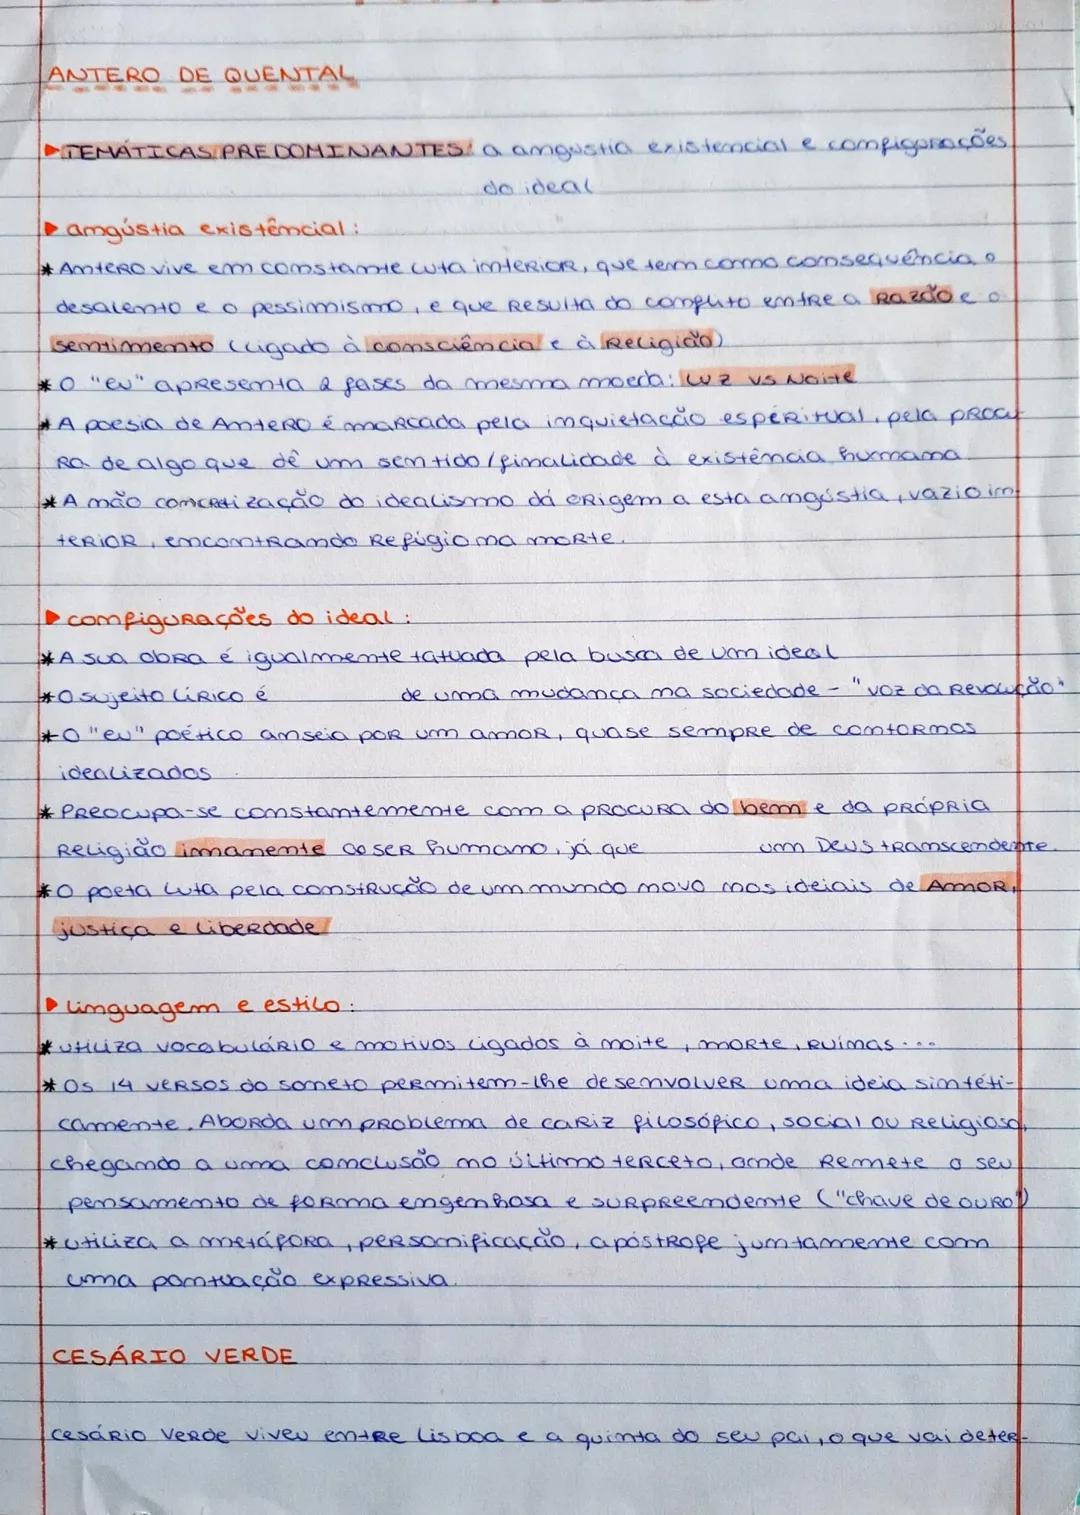 ANTERO DE QUENTAL
▶TEMÁTICAS PREDOMINANTES: a angustia existencial e configurações
do ideal
▶ angústia existêncial:
* Antero vive em constante luta interior, que tem como consequência o
desalento e o pessimismo, e que resulta do conflito entre a Razão e o
sentimento (ligado à consciência e à Religião)
* O "eu" apresenta 2 fases da mesma moeda: Luz vs Noite
* A poesia de Antero é marcada pela inquietação espéritual, pela procu
ra de algo que dê um sentido/finalidade à existência humana.
* A não concretização do idealismo dá erigem a esta angústia, vazio in
terior, encontrando refúgio na morte.
▶ configurações do ideal:
* A sua obra é igualmente tatuada pela busca de um ideal
* O sujeito lírico é de uma mudança na sociedade - "voz da Revolução"
* O "eu" poético anseia por um amor, quase sempre de contornos
idealizados
* Preocupa-se constantemente com a procura do bem e da própria
Religião imanente ao ser humano, já que um Deus transcendente.
* O poeta luta pela construção de um mundo novo nos ideiais de Amor,
justiça e liberdade
▶ linguagem e estilo:
* utiliza vocabulário e motivos ligados à noite, morte, ruínas...
* Os 14 versos do soneto permitem-lhe desenvolver uma ideia sintéti-
camente. Aborda um problema de cariz filosófico, social ou religioso,
chegando a uma conclusão no último terceto, onde remete o seu
pensamento de forma engenhosa e surpreendente ("chave de ouro")
* utiliza a metáfora, personificação, apóstrofe juntamente com
uma pontuação expressiva.
CESÁRIO VERDE
Cesário Verde viveu entre Lisboa e a quinta do seu pai, o que vai deter-